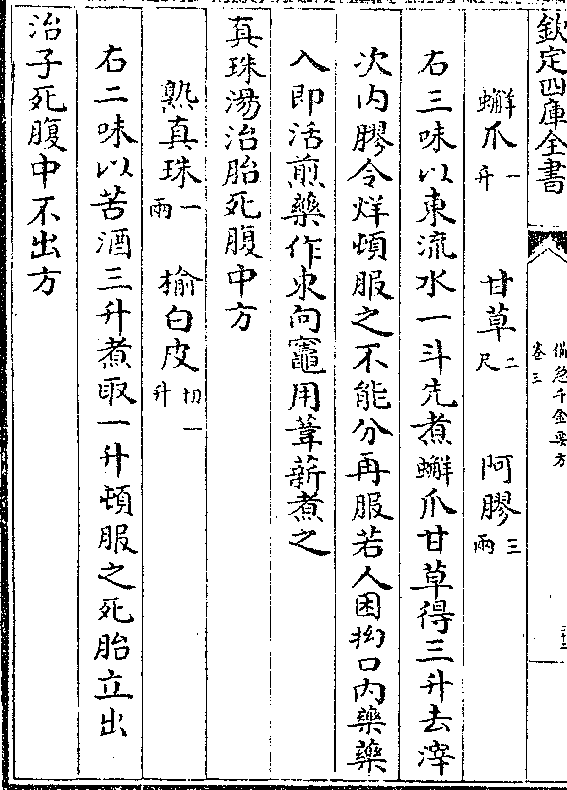 欽定四庫全書
備急千金要方
卷三
蠏爪一升 甘草二尺 阿膠三兩
右三味以東流水一斗先煮蠏爪甘草得三升去滓
次内膠令烊頓服之不能分再服若人困拗口内藥藥
入即活煎藥作東向竈用葦薪煮之
真珠湯治胎死腹中方
熟真珠一兩 榆白皮切一升
右二味以苦酒三升煮取一升頓服之死胎立出
治子死腹中不出方